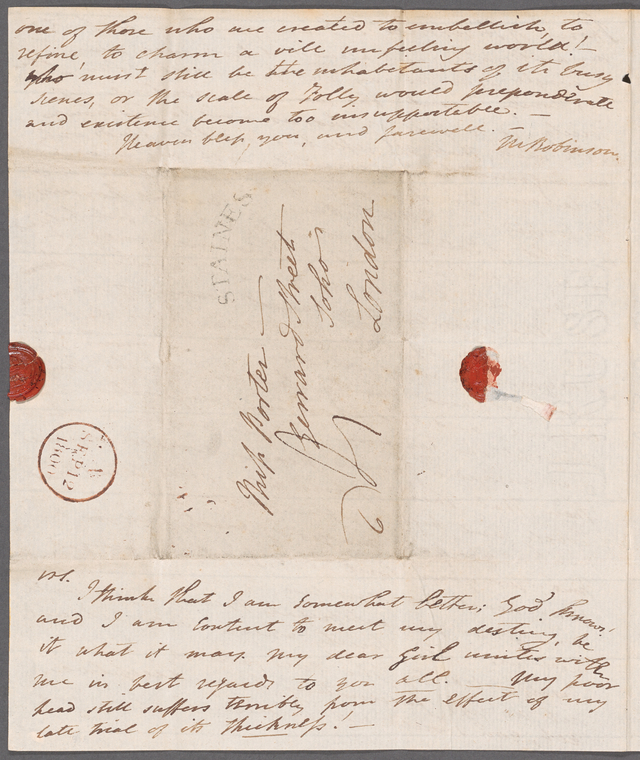 one of those who are created to embellish, to
refine, to charm a vile unfeeling world!—
who must still be the inhabitants of its busy
scenes, or the scale of Folly would preponderate
and existence become too insupportable.—
Heaven bless you, and farewell.
M Robinson.
STAINES
Miss Porter
Gerrard Street
Soho
London
SEP 12
1800
I think that I am somewhat better; God knows!
and I am content to meet my destiny, be
it what it may. My dear Girl unites with
me in best regards to you all. — My poor
head still suffers terribly from the effect of my
late trial of its thickness!—